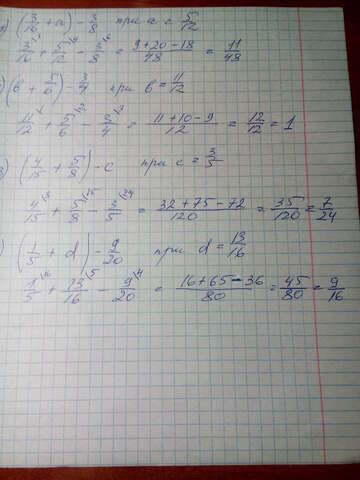 ) (3/16 + a) - 3/8 при a = 5/12
3/16 + 5/12 - 3/8 = (9+20-18)/48 = 11/48
) (в + 5/6) - 3/4 при в = 11/12
11/12 + 5/6 - 3/4 = (11+10-9)/12 = 12/12 = 1
) (4/15 + 5/8) - c при c = 3/5
4/15 + 5/8 - 3/5 = (32+75-72)/120 = 35/120 = 7/24
) (1/5 + d) - 9/20 при d = 13/16
1/5 + 13/16 - 9/20 = (16+65-36)/80 = 45/80 = 9/16